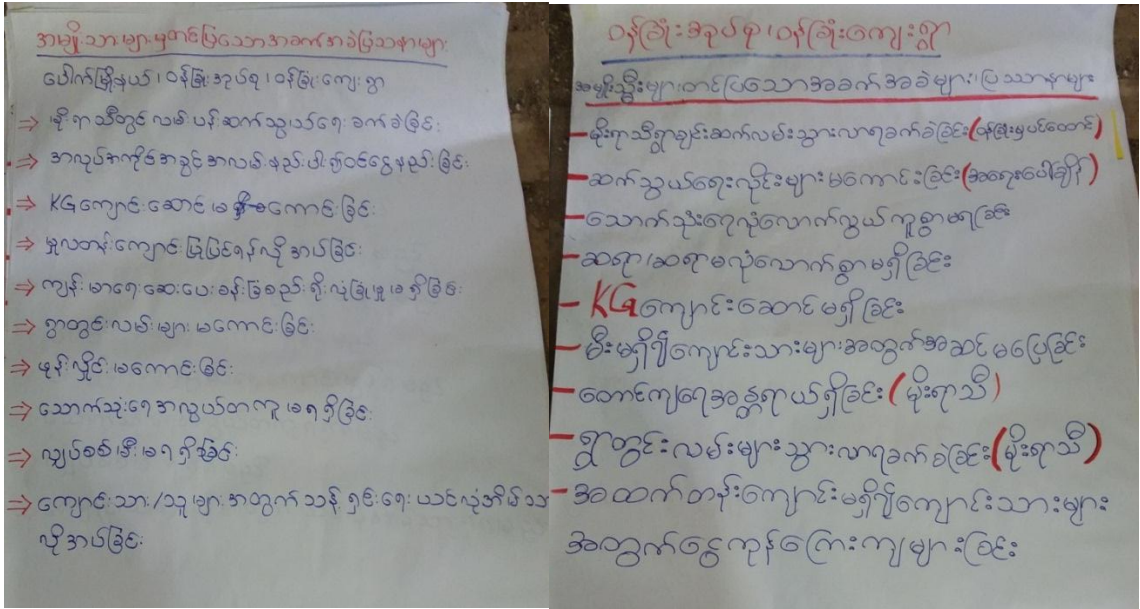 အမျိုးသားများမှတင်ပြသောအခက်အခဲပြဿနာများ
ပေါက်မြို့နယ်၊ ဝန်ခြုံးအုပ်စု၊ ဝန်ခြုံးကျေးရွာ
⇒ မိုးရာသီတွင် လမ်းပန်းဆက်သွယ်ရေး ခက်ခဲခြင်း
⇒ အလုပ်အကိုင်အခွင့်အလမ်းနည်းပါး၍ဝင်ငွေနည်းခြင်း
⇒ KGကျောင်းဆောင်မကောင်းခြင်း
⇒ မူလတန်းကျောင်းပြုပြင်ရန်လိုအပ်ခြင်း
⇒ ကျန်းမာရေးဆေးပေးခန်းခြံစည်းရိုးလုံခြုံမှုမရှိခြင်း
⇒ ရွာတွင်းလမ်းများ မကောင်းခြင်း
⇒ ဖုန်းလိုင်းမကောင်းခြင်း
⇒ သောက်သုံးရေအလွယ်တကူမရရှိခြင်း
⇒ လျှပ်စစ်မီးမရရှိခြင်း
⇒ ကျောင်းသား/သူများအတွက်သန့်ရှင်းရေးယင်လုံအိမ်သာ
လိုအပ်ခြင်း
ဝန်ခြုံးအုပ်စု၊ဝန်ခြုံးကျေးရွာ
အမျိုးသ္မီးများတင်ပြသောအခက်အခဲများ၊ပြဿာနာများ
– မိုးရာသီရွာချင်းဆက်လမ်းသွားလာရခက်ခဲခြင်း(ဝန်ခြုံးမှပင်တောင်)
– ဆက်သွယ်ရေးလိုင်းများမကောင်းခြင်း(အရေးပေါ်ချိန်)
– သောက်သုံးရေလုံလောက်လွယ်ကူစွာမရခြင်း
– ဆရာ၊ဆရာမလုံလောက်စွာမရှိခြင်း
– KGကျောင်းဆောင်မရှိခြင်း
– မီးမရှိ၍ကျောင်းသားများအတွက်အဆင်မပြေခြင်း
– တောင်ကျရေအန္တရာယ်ရှိခြင်း(မိုးရာသီ)
– ရွာတွင်းလမ်းများသွားလာရခက်ခဲခြင်း(မိုးရာသီ)
– အထက်တန်းကျောင်းမရှိ၍ကျောင်းသားများ
အတွက်ငွေကုန်ကြေးကျများခြင်း